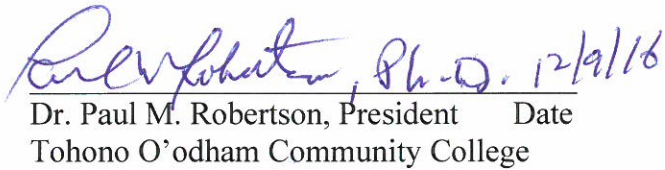 Paul M Robertson, Ph.D. 12/9/16
Dr. Paul M. Robertson, President Date
Tohono O'odham Community College